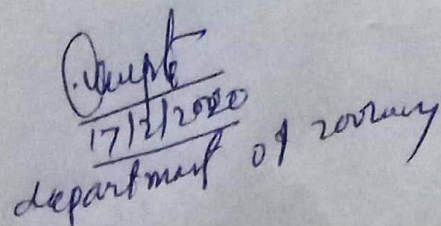 17/2/2020
department of zoology